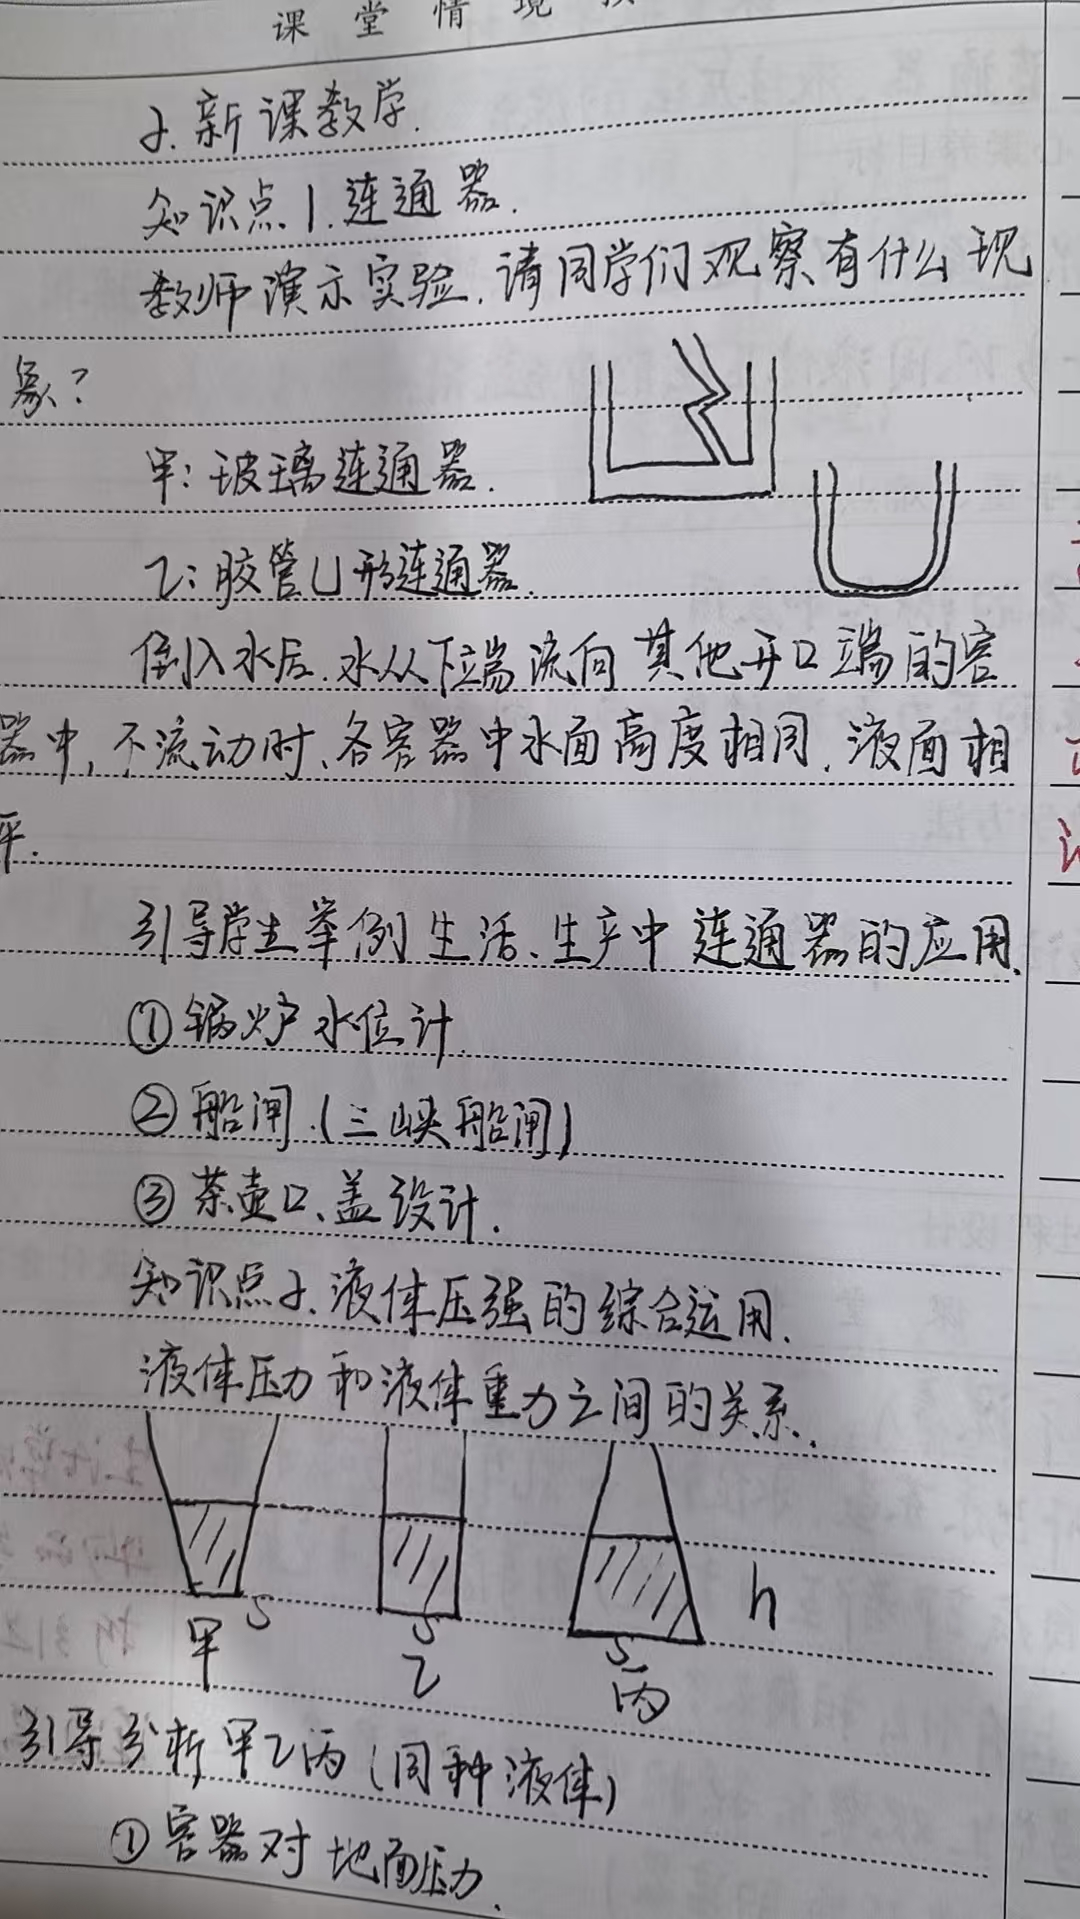 课堂情境
2.新课教学.
知识点1.连通器.
教师演示实验,请同学们观察有什么现
象?
甲:玻璃连通器.
乙:胶管U形连通器.
倒入水后.水从下端流向其他开口端的容
器中,不流动时、各容器中水面高度相同.液面相
平.
引导学生举例生活、生产中连通器的应用.
①锅炉水位计.
②船闸.(三峡船闸)
③茶壶口、盖设计.
知识点2.液体压强的综合运用.
液体压力和液体重力之间的关系.
S S S h
甲 乙 丙
引导分析甲乙丙(同种液体)
①容器对地面压力.